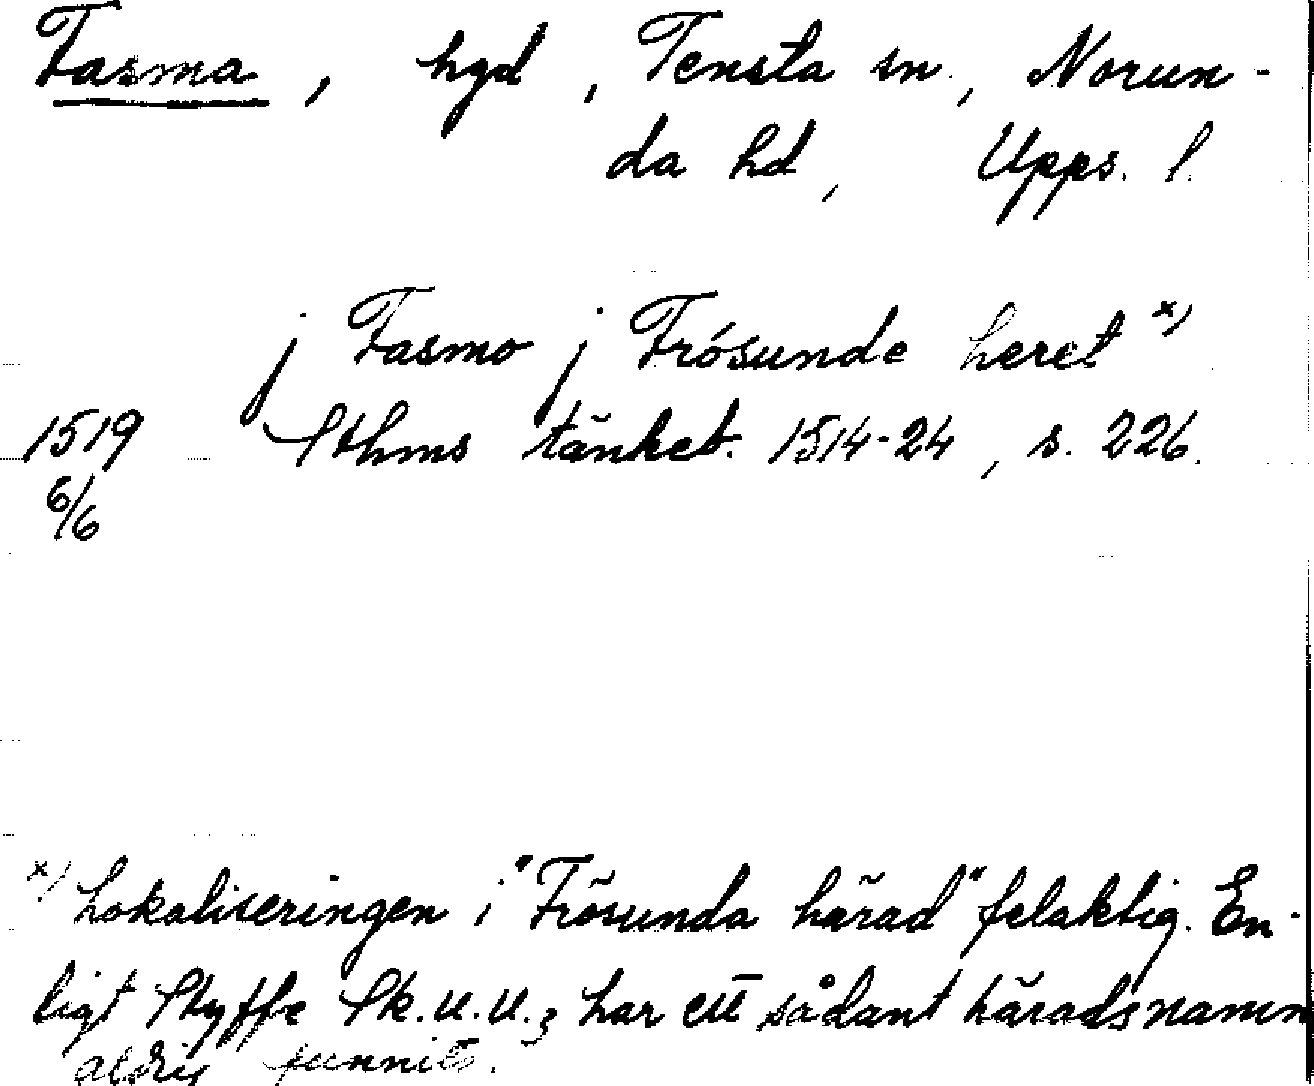 Fasma, hgd, Tensta sn., Norun-
da hd, Upps. l.
j Fasmo j Frósunde heret x)
1519 Sthms tänkeb. 1514-24, s. 226.
6/6
x) Lokaliseringen i "Frösunda härad" felaktig. En-
ligt Styffe Sk.U.U.3 har ett sådant häradsnamn
aldrig funnits.